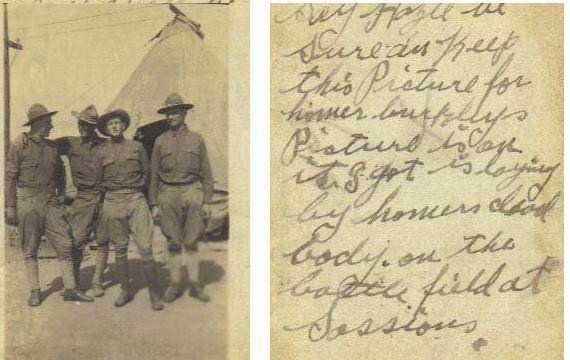 Hey Hazle be
Sure an Keep
this Picture for
homer burkleys
Picture is on
it I got it laying
by homers dead
body. on the
battle field at
Sassions